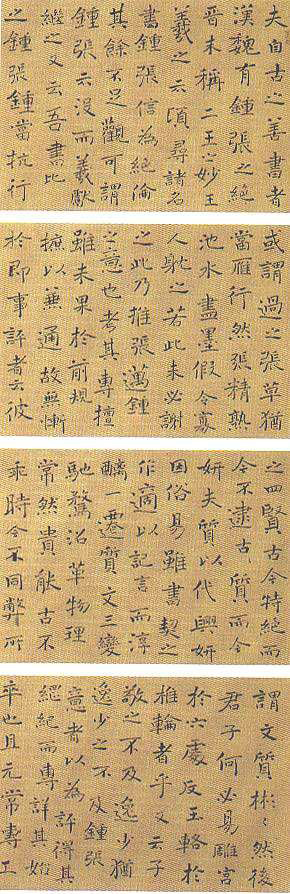 夫自古之善書者
漢魏有鍾張之絕
晉末稱二王之妙王
羲之云頃尋諸名
書鍾張信為絕倫
其餘不足觀可謂
鍾張云沒而羲獻
繼之又云吾書比
之鍾張鍾當抗行
或謂過之張草猶
當雁行然張精熟
池水盡墨假令寡
人耽之若此未必謝
之此乃推張邁鍾
之意也考其專擅
雖未果於前規
摭以兼通故無慚
於即事評者云彼
之四賢古今特絕而
今不逮古古質而今
妍夫質以代興妍
因俗易雖書契之
作適以記言而淳
醨一遷質文三變
馳騖沿革物理
常然貴能古不
乖時今不同弊所
謂文質彬々然後
君子何必易雕宮
於穴處反玉輅於
椎輪者乎又云子
敬之不及逸少猶
逸少之不及鍾張
意者以為評得其
紀而詳其始
卒也且元常專工